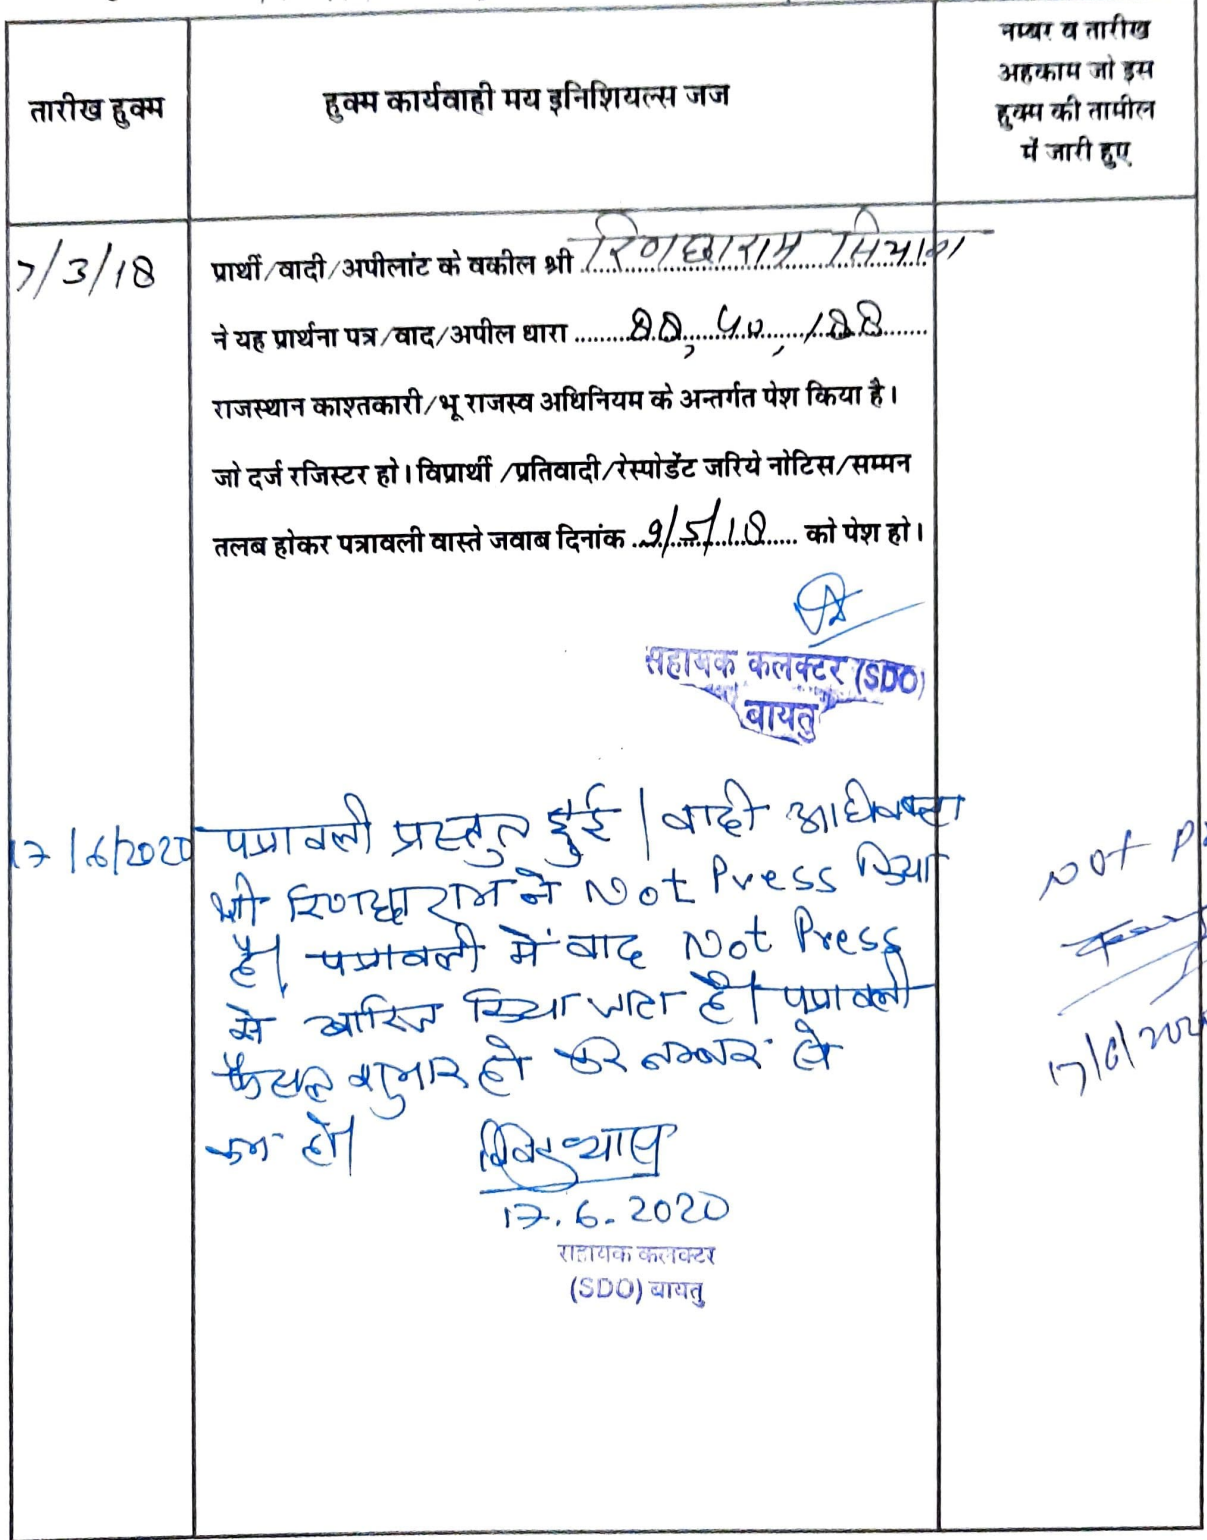 तारीख हुक्म
हुक्म कार्यवाही मय इनिशियल्स जज
नम्बर व तारीख
अहकाम जो इस
हुक्म की तामील
में जारी हुए
7/3/18
प्रार्थी/वादी/अपीलांट के वकील श्री रिणछाराम सियाग
ने यह प्रार्थना पत्र/वाद/अपील धारा 88, 40, 188
राजस्थान काश्तकारी/भू राजस्व अधिनियम के अन्तर्गत पेश किया है।
जो दर्ज रजिस्टर हो। विप्रार्थी /प्रतिवादी/रेस्पोडेंट जरिये नोटिस/सम्मन
तलब होकर पत्रावली वास्ते जवाब दिनांक 9/5/18 को पेश हो।
सहायक कलक्टर (SDO)
बायतु
17/6/2020 पत्रावली प्रस्तुत हुई। वादी अधिवक्ता
श्री रिणछाराम ने Not Press किया
है। पत्रावली में वाद Not Press
से खारिज किया जाता है। पत्रावली
फैसल शुमार हो कर नम्बर से
कम हो।
17.6.2020
सहायक कलक्टर
(SDO) बायतु
Not
17/6/202